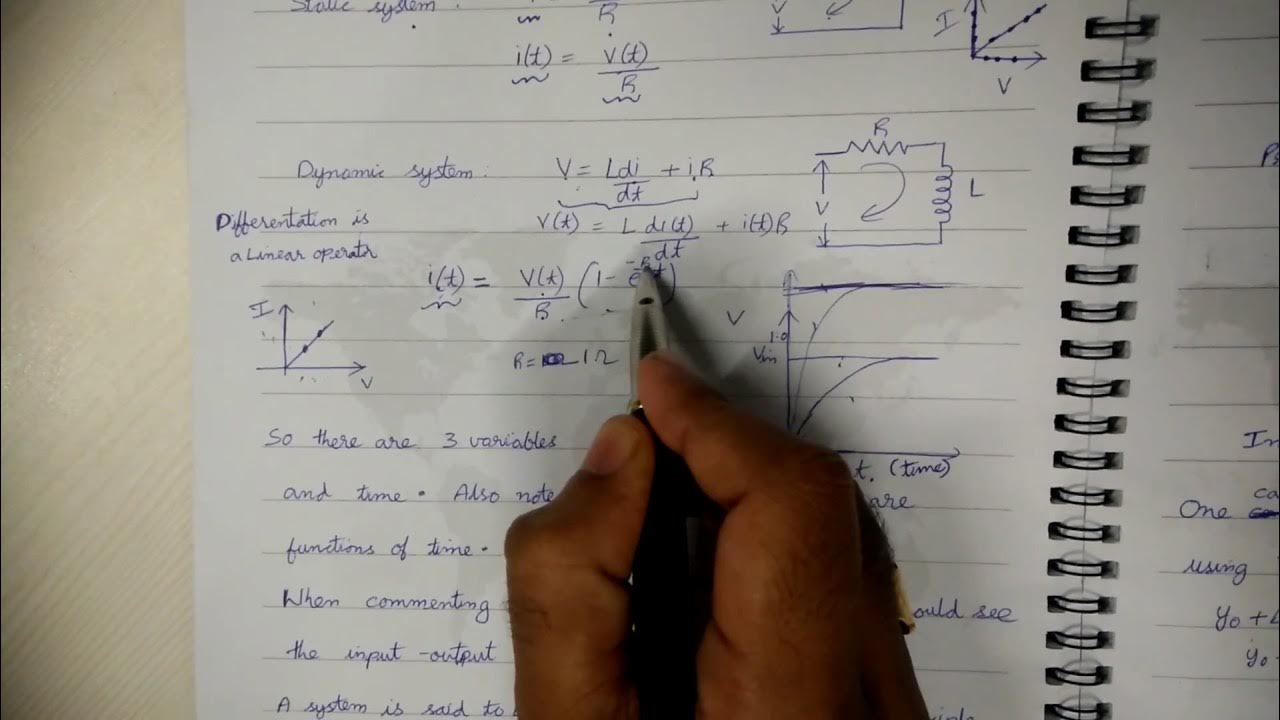 Static system.
R
V
I
i(t) = V(t)
R
V
R
Dynamic system: V = L di + iR
dt
L
V
Differentation is
a Linear operator
V(t) = L di(t) + i(t)R
dt
i(t) = V(t) (1 - e
R
I
V
V
1.0
Vin
R = 1Ω
So there are 3 variables
t. (time)
and time. Also note
are
functions of time.
When commenting
ould see
the input-output
A system is said to
In
One
using
y₀ +